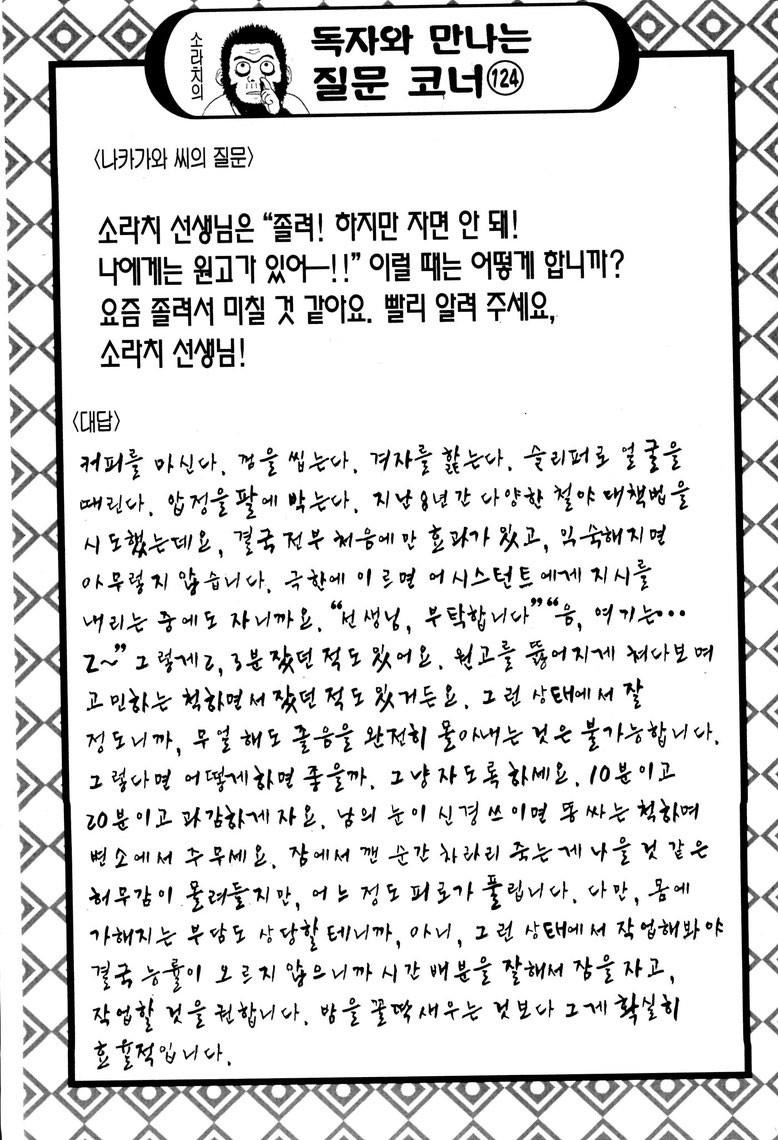 소라치의
독자와 만나는
질문 코너 124
〈나카가와 씨의 질문〉
소라치 선생님은 “졸려! 하지만 자면 안 돼!
나에게는 원고가 있어—!!” 이럴 때는 어떻게 합니까?
요즘 졸려서 미칠 것 같아요. 빨리 알려 주세요,
소라치 선생님!
〈대답〉
커피를 마신다. 껌을 씹는다. 겨자를 핥는다. 슬리퍼로 얼굴을
때린다. 압정을 팔에 박는다. 지난 8년간 다양한 철야 대책법을
시도했는데요, 결국 전부 처음에만 효과가 있고, 익숙해지면
아무렇지 않습니다. 극한에 이르면 어시스턴트에게 지시를
내리는 중에도 자니까요. “선생님, 부탁합니다” “음, 여기는…
Z~” 그렇게 2, 3분 잤던 적도 있어요. 원고를 뚫어지게 쳐다보며
고민하는 척하면서 잤던 적도 있거든요. 그런 상태에서 잘
정도니까, 무얼 해도 졸음을 완전히 몰아내는 것은 불가능합니다.
그렇다면 어떻게 하면 좋을까. 그냥 자도록 하세요. 10분이고
20분이고 과감하게 자요. 남의 눈이 신경 쓰이면 똥 싸는 척하며
변소에서 주무세요. 잠에서 깬 순간 차라리 죽는 게 나을 것 같은
허무감이 몰려들지만, 어느 정도 피로가 풀립니다. 다만, 몸에
가해지는 부담도 상당할 테니까, 아니, 그런 상태에서 작업해봐야
결국 능률이 오르지 않으니까 시간 배분을 잘해서 잠을 자고,
작업할 것을 권합니다. 밤을 꼴딱 새우는 것보다 그게 확실히
효율적입니다.